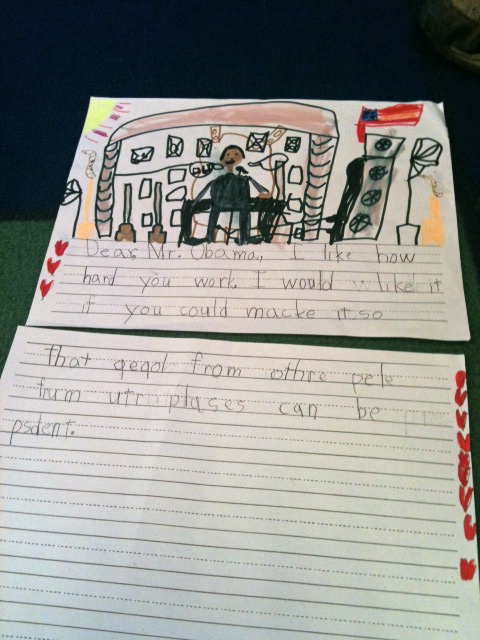 Dear, Mr. Obama, I like how
hard you work. I would like it
if you could macke it so
that qeqol from othre pele
fum utr plases can be
psdent.